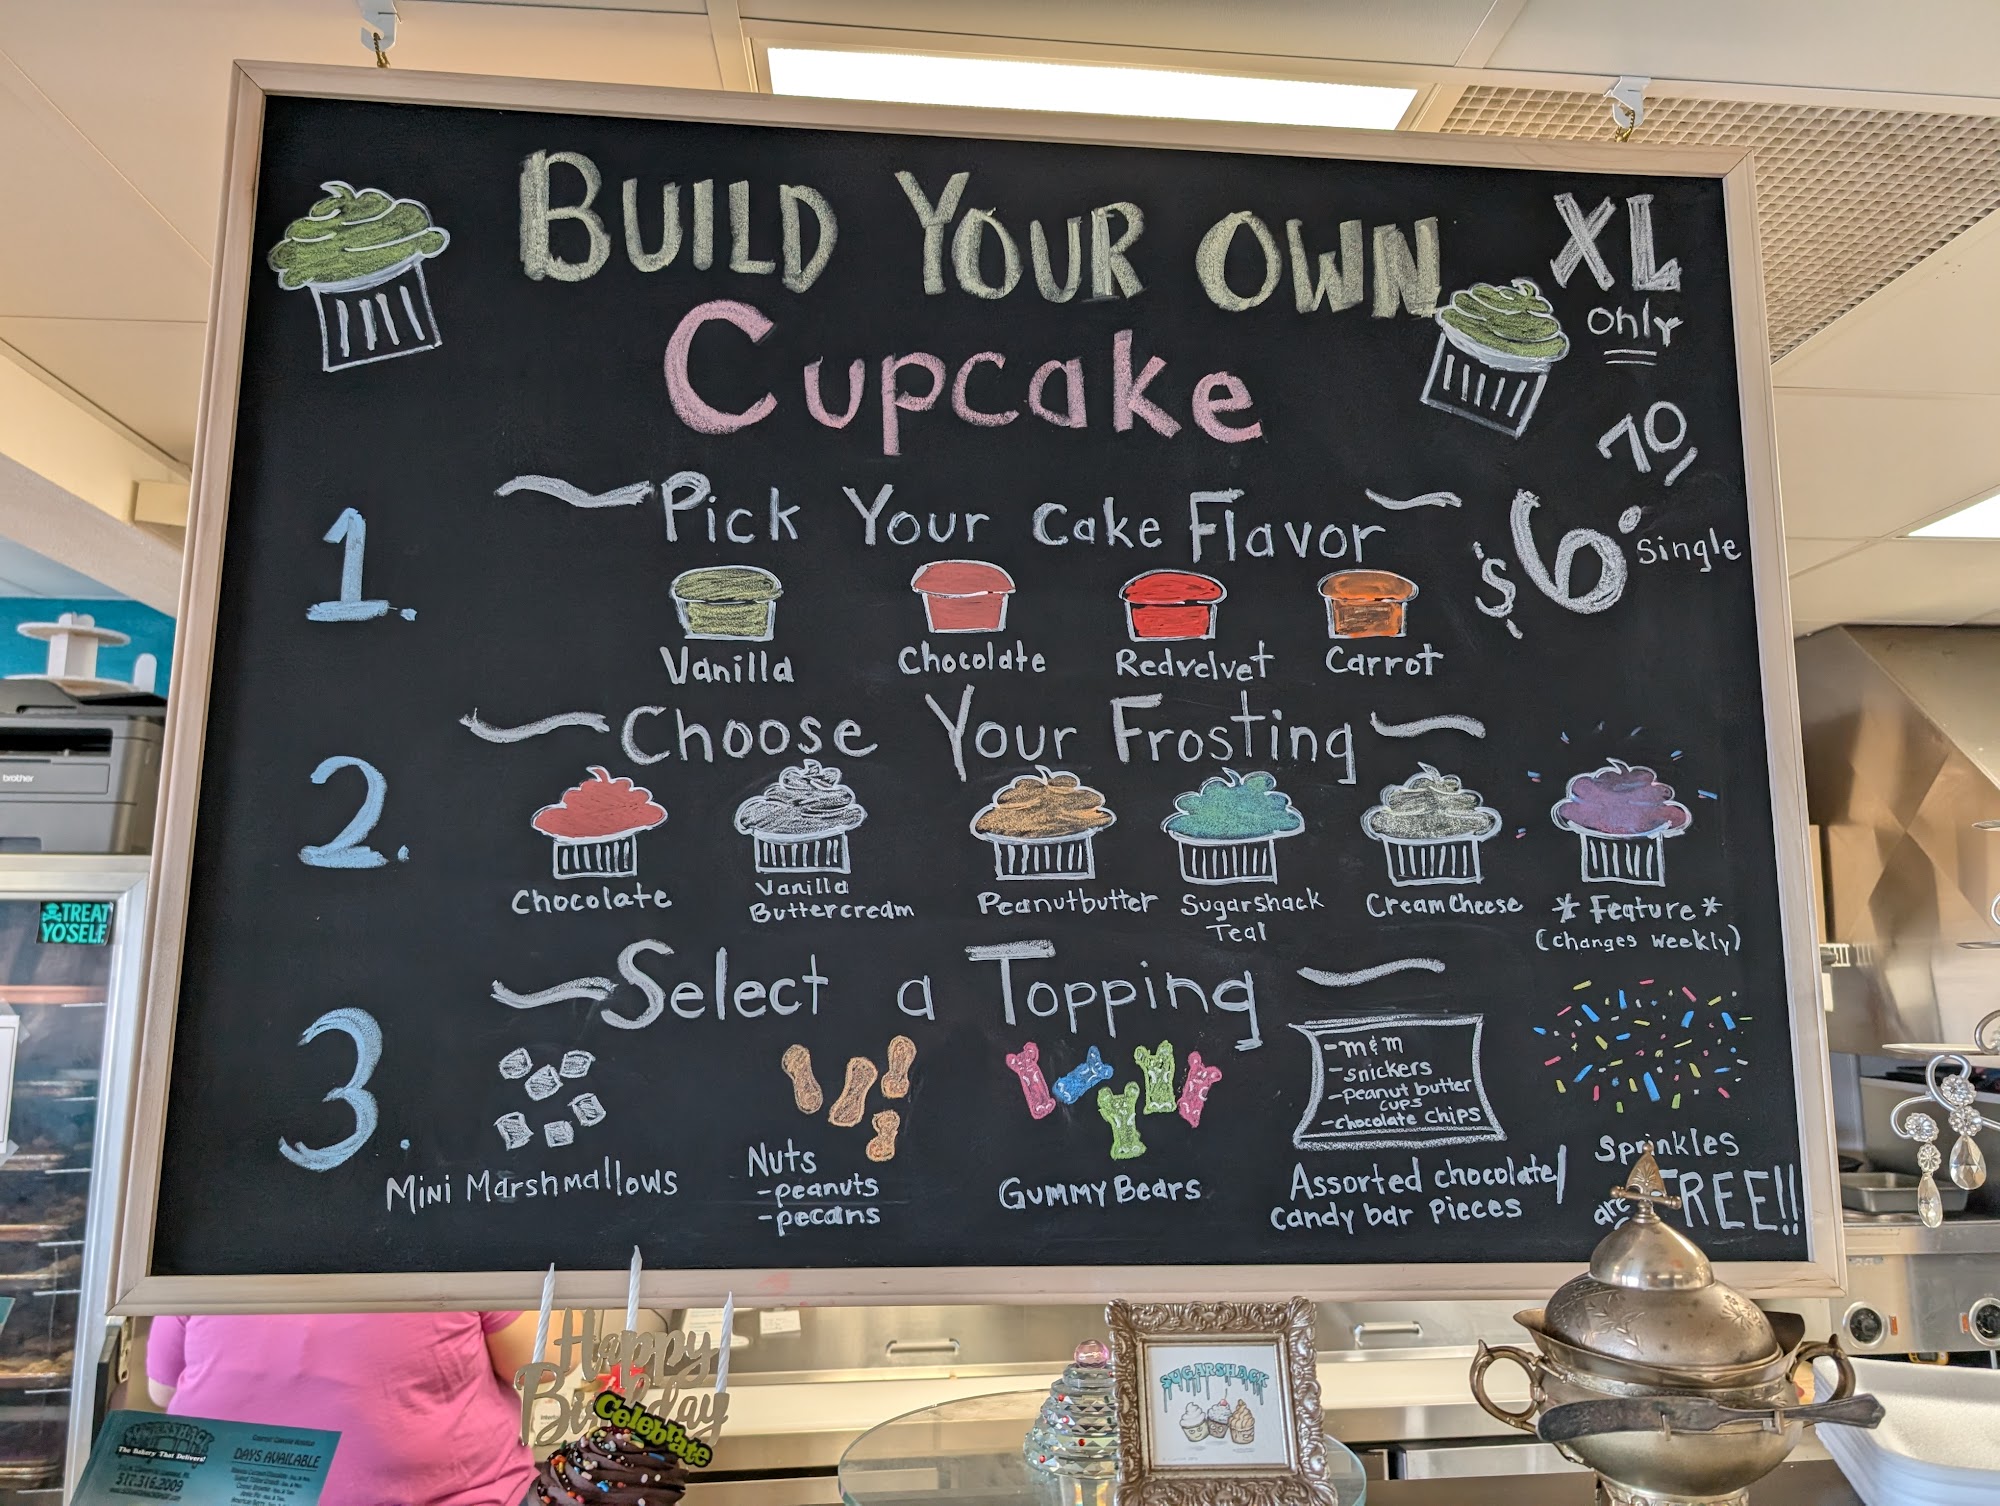 BUILD YOUR OWN
Cupcake
XL
only
$6.70
Single
1.
Pick Your Cake Flavor
Vanilla
Chocolate
Redvelvet
Carrot
2.
Choose Your Frosting
Chocolate
Vanilla
Buttercream
Peanutbutter
Sugarshack
Teal
Cream Cheese
* Feature *
(changes weekly)
3.
Select a Topping
Mini Marshmallows
Nuts
-peanuts
-pecans
Gummy Bears
-m&m
-snickers
-peanut butter
cups
-chocolate chips
Assorted chocolate/
candy bar pieces
Sprinkles
are FREE!!
brother
TREAT
YO'SELF
Happy
Birthday
Celebrate
SUGARSHACK
SUGARSHACK
The Bakery That Delivers!
517.316.2009
DAYS AVAILABLE